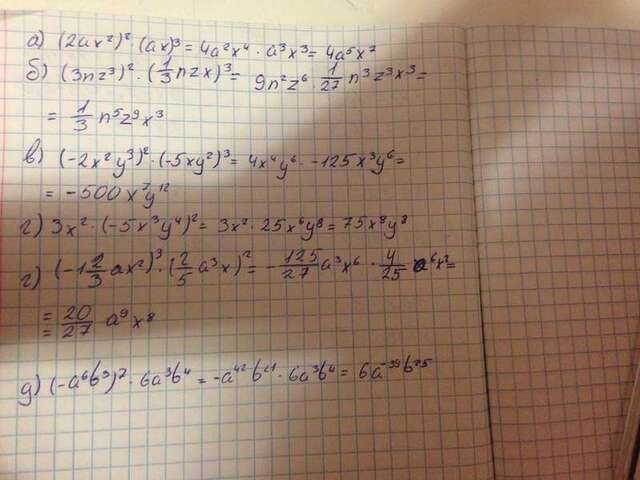 а) (2ax²)² · (ax)³ = 4a²x⁴ · a³x³ = 4a⁵x⁷
б) (3nz³)² · (1/3 nzx)³ = 9n²z⁶ · 1/27 n³z³x³ =
= 1/3 n⁵z⁹x³
в) (-2x²y³)² · (-5xy²)³ = 4x⁴y⁶ · -125x³y⁶ =
= -500x⁷y¹²
г) 3x² · (-5x³y⁴)² = 3x² · 25x⁶y⁸ = 75x⁸y⁸
г) (-1 2/3 ax²)³ · (2/5 a³x)² = -125/27 a³x⁶ · 4/25 a⁶x² =
= 20/27 a⁹x⁸
д) (-a⁶b³)⁷ · 6a³b⁴ = -a⁴²b²¹ · 6a³b⁴ = 6a⁻³⁹b²⁵